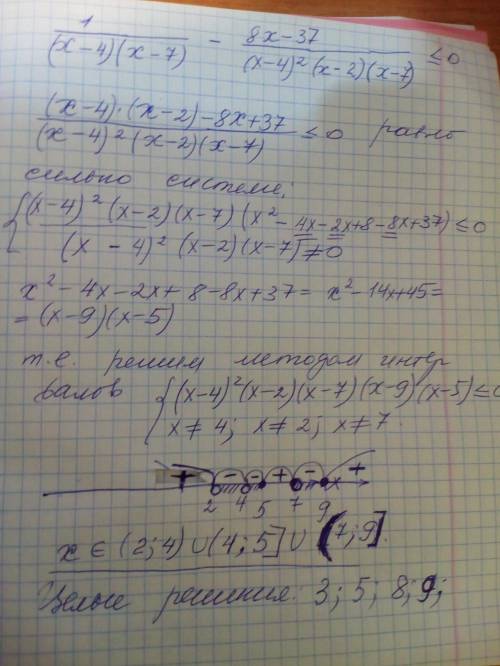 1/((x-4)(x-7)) - (8x-37)/((x-4)²(x-2)(x-7)) ≤0
((x-4)·(x-2)-8x+37)/((x-4)²(x-2)(x-7)) ≤0 равно
сильно системе:
{(x-4)²(x-2)(x-7)(x²-4x-2x+8-8x+37)≤0
(x-4)²(x-2)(x-7)≠0
x²-4x-2x+8-8x+37= x²-14x+45=
=(x-9)(x-5)
т.е. решим методом интер
валов {(x-4)²(x-2)(x-7)(x-9)(x-5)≤0
x≠4; x≠2; x≠7.
+ - - + - +
2 4 5 7 9 x
x∈(2;4)∪(4;5]∪(7;9].
Целые решения: 3; 5; 8; 9;